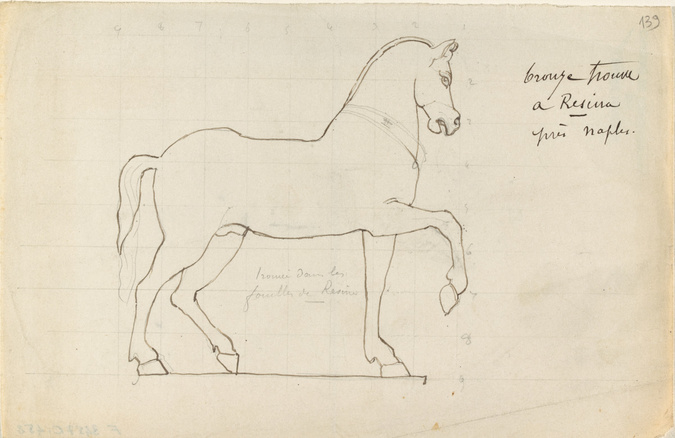 139
bronze trouvé
a Resina
près naples.
trouvé dans les
fouilles de Resina
9 8 7 6 5 4 3 2 1
2
6
7
8
9